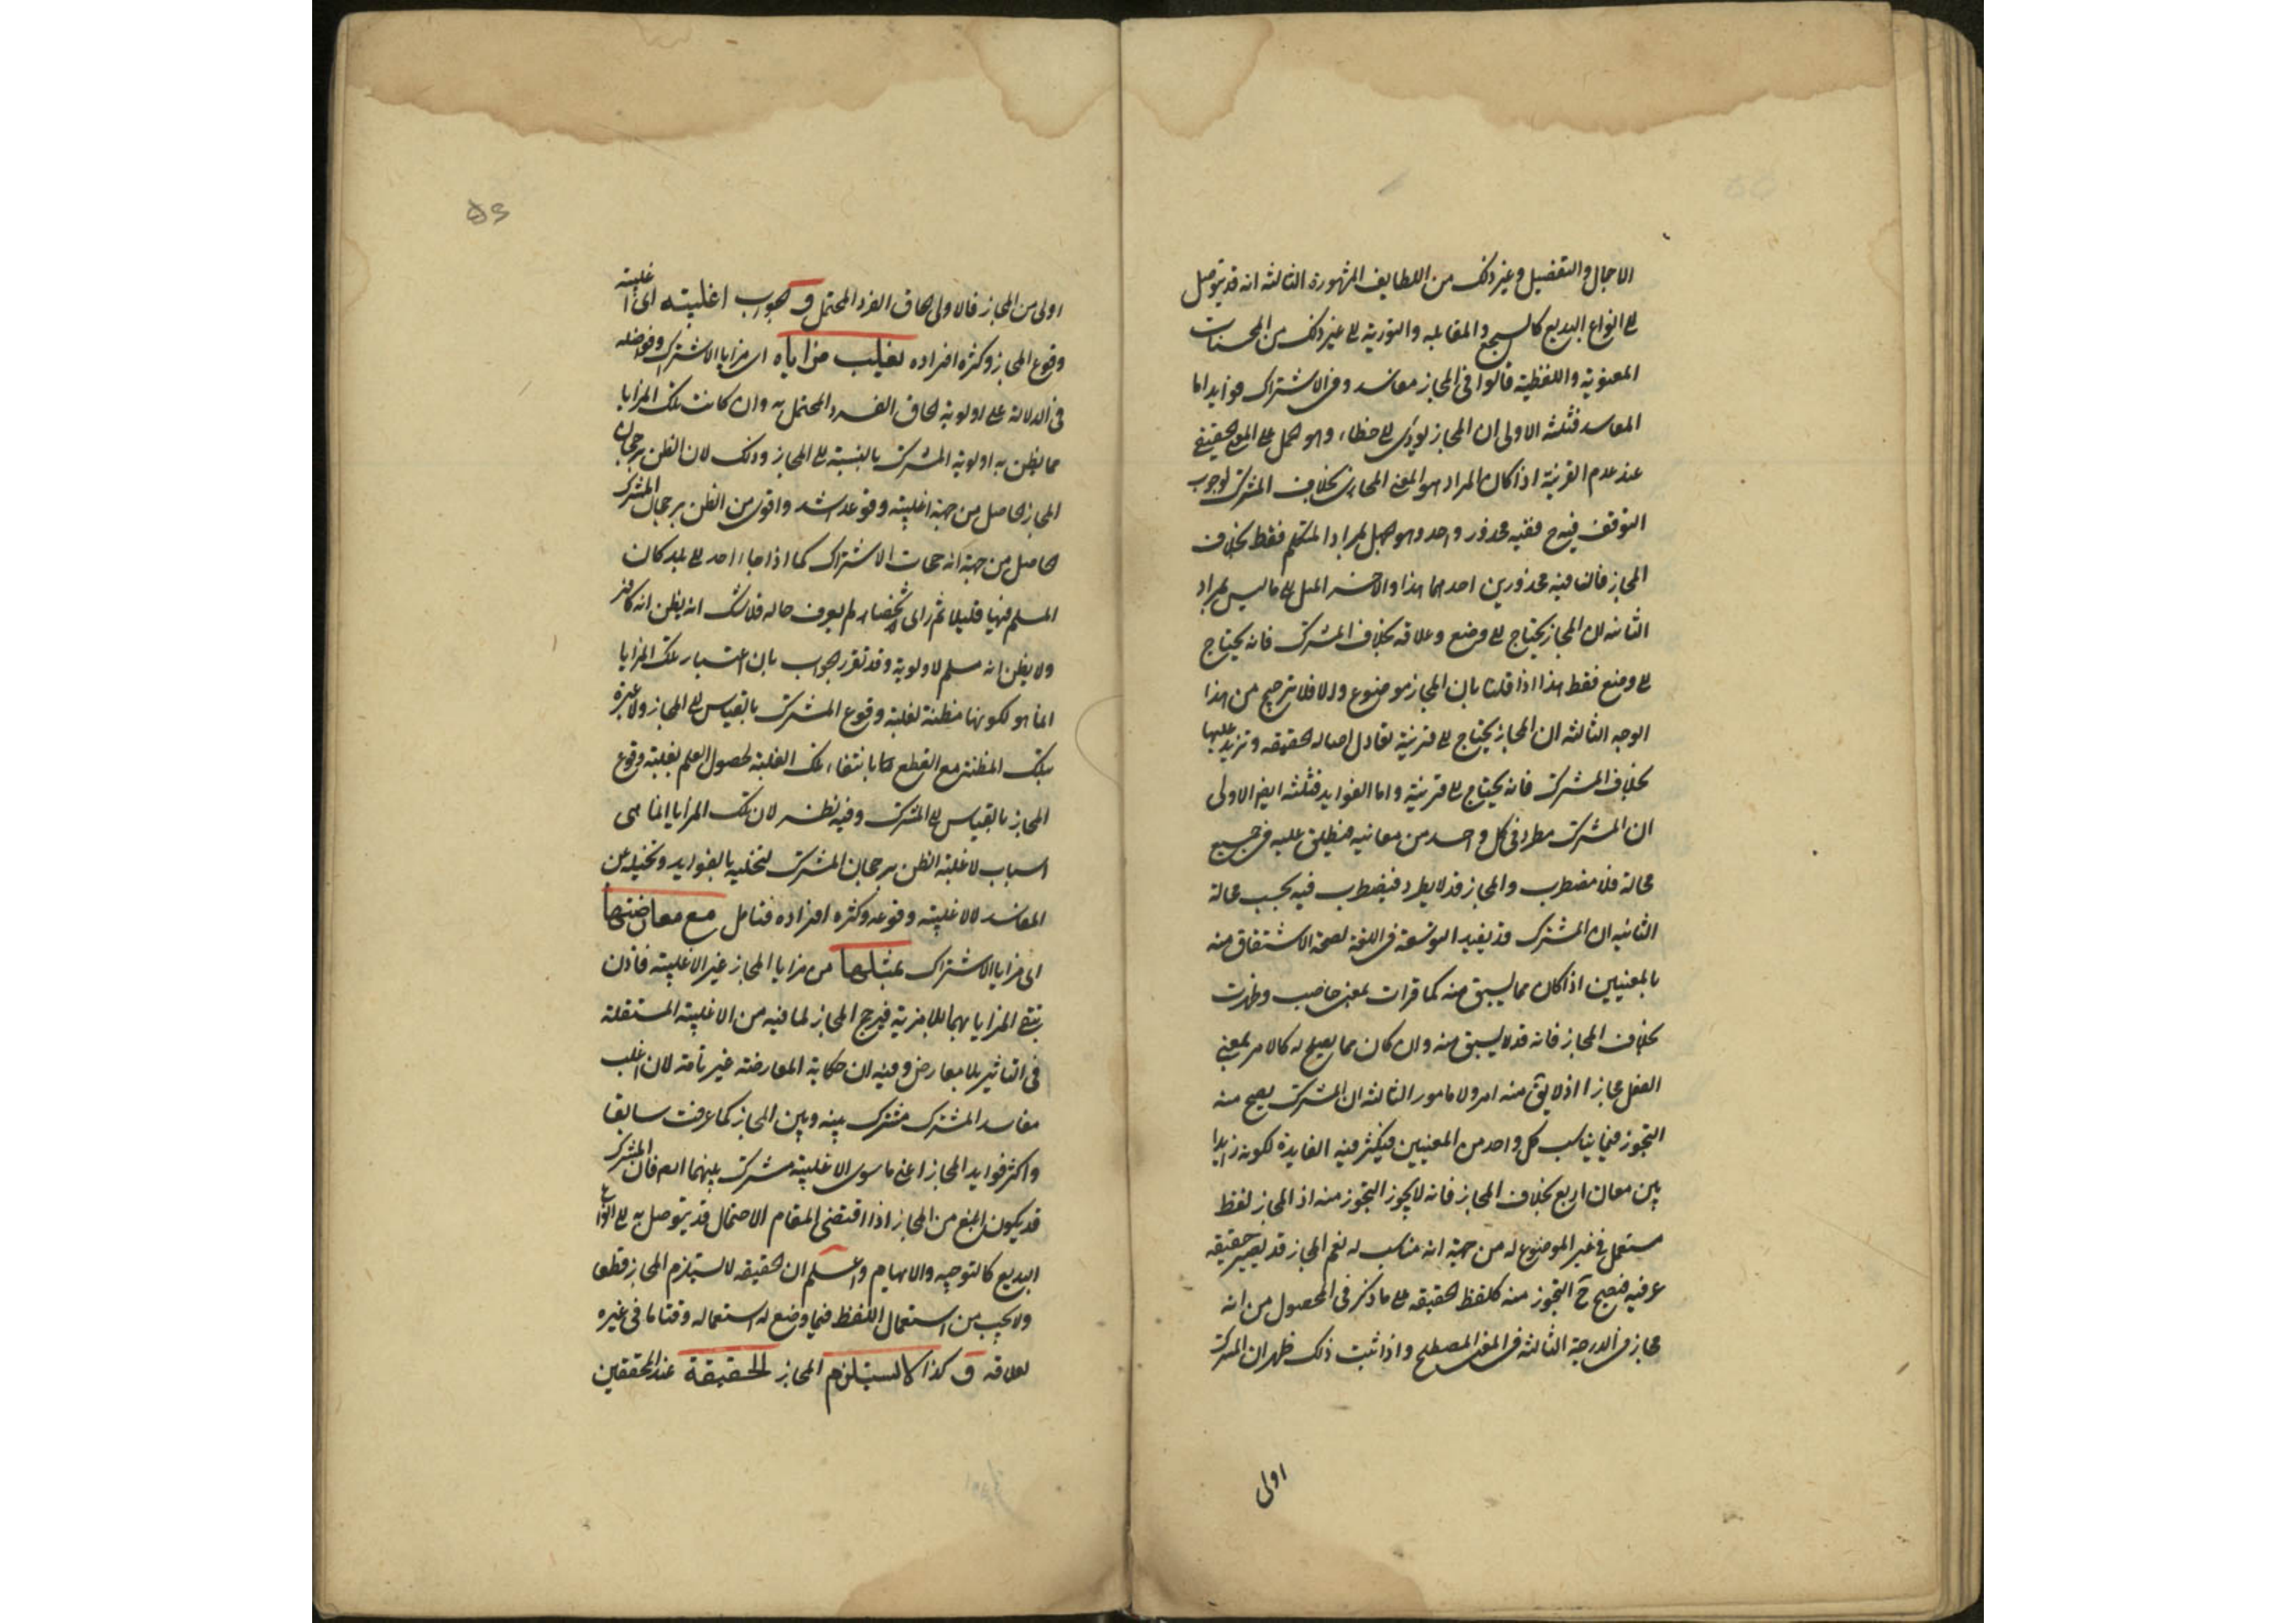 الاجمال والتفصيل وغير ذلك من اللطايف المشهورة الثالثه انه قد يتوصل
الى انواع البديع كالسجع والمقابله والتورية الى غير ذلك من المحسنات
المعنوية واللفظية قالوا في المجاز مفاسد وفي الاشتراك فوايد اما
المفاسد فثلثه الاولى ان المجاز يؤدي الى خطاء وهو الحمل على المعنى الحقيقي
عند عدم القرينة اذا كان المراد هو المعنى المجازى بخلاف المشترك لوجوب
التوقف فيه ح ففيه محذور واحد وهو جهل بمراد المتكلم فقط بخلاف
المجاز فان فيه محذورين احدهما هذا والاخر الحمل على ما ليس بمراد
الثانيه ان المجاز يحتاج الى وضع وعلاقه بخلاف المشترك فانه يحتاج
الى وضع فقط هذا اذا قلنا بان المجاز موضوع والا فلا ترجيح من هذا
الوجه الثالثه ان المجاز يحتاج الى قرينة تعادل اصاله الحقيقه وتزيد عليها
بخلاف المشترك فانه يحتاج الى قرينة واما الفوايد فثلثه ايضا الاولى
ان المشترك مطرد في كل واحد من معانيه فيطلق عليه في جميع
محاله فلا مضطرب والمجاز قد لا يطرد فيضطرب فيه بحسب محاله
الثانيه ان المشترك قد يفيد التوسعة في اللغة لصحة الاشتقاق منه
بالمعنيين اذا كان مما يشتق منه كما قرات بمعنى حاضت وطهرت
بخلاف المجاز فانه قد لا يشتق منه وان كان مما يصلح له كالامر بمعنى
الفعل مجازا اذ لا يق منه امر ولا مامور الثالثه ان المشترك يصح منه
التجوز فيما يناسب كل واحد من المعنيين فيكثر فيه الفايدة لكونه زايدا
بين معان اربع بخلاف المجاز فانه لا يجوز التجوز منه اذ المجاز لفظ
مستعمل في غير الموضوع له من جهة انه مناسب له نعم المجاز قد يصير حقيقه
عرفيه فيصح ح التجوز منه كلفظ الحقيقه على ما ذكر في المحصول من انه
مجاز في الدرجة الثالثه في المعنى المصطلح واذا ثبت ذلك ظهر ان المشترك
اولى
اولى من المجاز فالاولى الحاق الفرد المحتمل و الجواب اغلبيته اى اغلبية
وقوع المجاز وكثرة افراده تغليب مزاياه اى مزايا الاشتراك وفوايده
في الدلالة على اولوية الحاق الفرد المحتمل به وان كانت تلك المزايا
مما يظن به اولوية المشترك بالنسبة الى المجاز وذلك لان الظن برجحان
المجاز الحاصل من جهة اغلبية وقوعه اشد واقوى من الظن برجحان المشترك
الحاصل من جهة رجحات الاشتراك كما اذا جاء احد الى بلد كان
المسلم فيها قليلا ثم راى شخصا لم يعرف حاله فلا شك انه يظن انه كافر
ولا يظن انه مسلم لاولوية وقد تقرر الجواب بان اعتبار تلك المزايا
انما هو لكونها مظنة لغلبة وقوع المشترك بالقياس الى المجاز ولا عبرة
بتلك المظنة مع القطع بانتفاء تلك الغلبة لحصول العلم بغلبة وقوع
المجاز بالقياس الى المشترك وفيه نظر لان تلك المزايا انما هى
اسباب لاغلبية الظن برجحان المشترك لتحليه بالفوايد وتخليه عن
المفاسد لا لاغلبية وقوعه وكثرة افراده فتامل مع معارضتها
اى مزايا الاشتراك بمثلها من مزايا المجاز غير الاغلبية فاذن
تبقى المزايا بهما بلا مزية فيرجح المجاز لما فيه من الاغلبية المستقلة
في التاثير بلا معارض وفيه ان حكاية المعارضة غير تامة لان اغلب
مفاسد المشترك مشترك بينه وبين المجاز كما عرفت سابقا
واكثر فوايد المجاز اعنى ما سوى الاغلبية مشترك بينهما ايضا فان المشترك
قد يكون ابلغ من المجاز اذا اقتضى المقام الاجمال وقد يتوصل به الى انواع
البديع كالتوجيه والايهام واعلم ان الحقيقه لا يستلزم المجاز قطعا
ولا يجب من استعمال اللفظ فيما وضع له استعماله وقتا ما في غيره
لعلاقه و كذا لا يستلزم المجاز الحقيقة عند المحققين